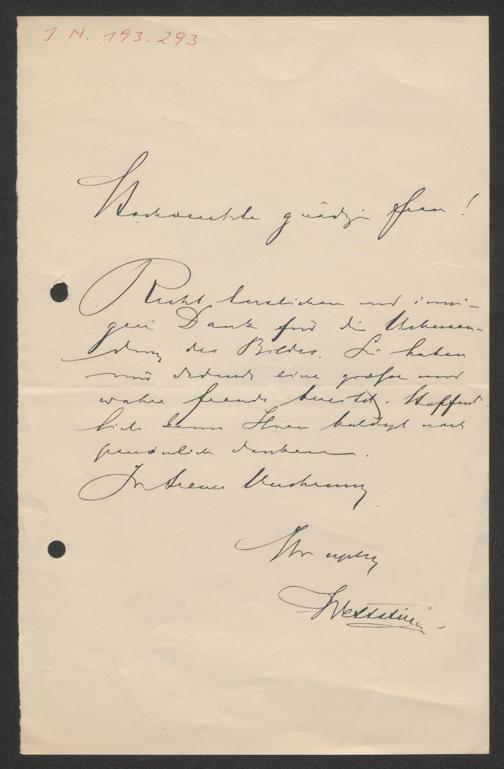 J. N. 193.293
Hochverehrte gnädige Frau!
Recht herzlichen und inni-
gen Dank für die Uebersen-
dung des Bildes. Sie haben
mir dadurch eine große und
wahre Freude bereitet. Hoffent-
lich kann Ihnen baldigst noch
persönlich danken.
In treuer Verehrung
Ihr ergeb.
Wettstein